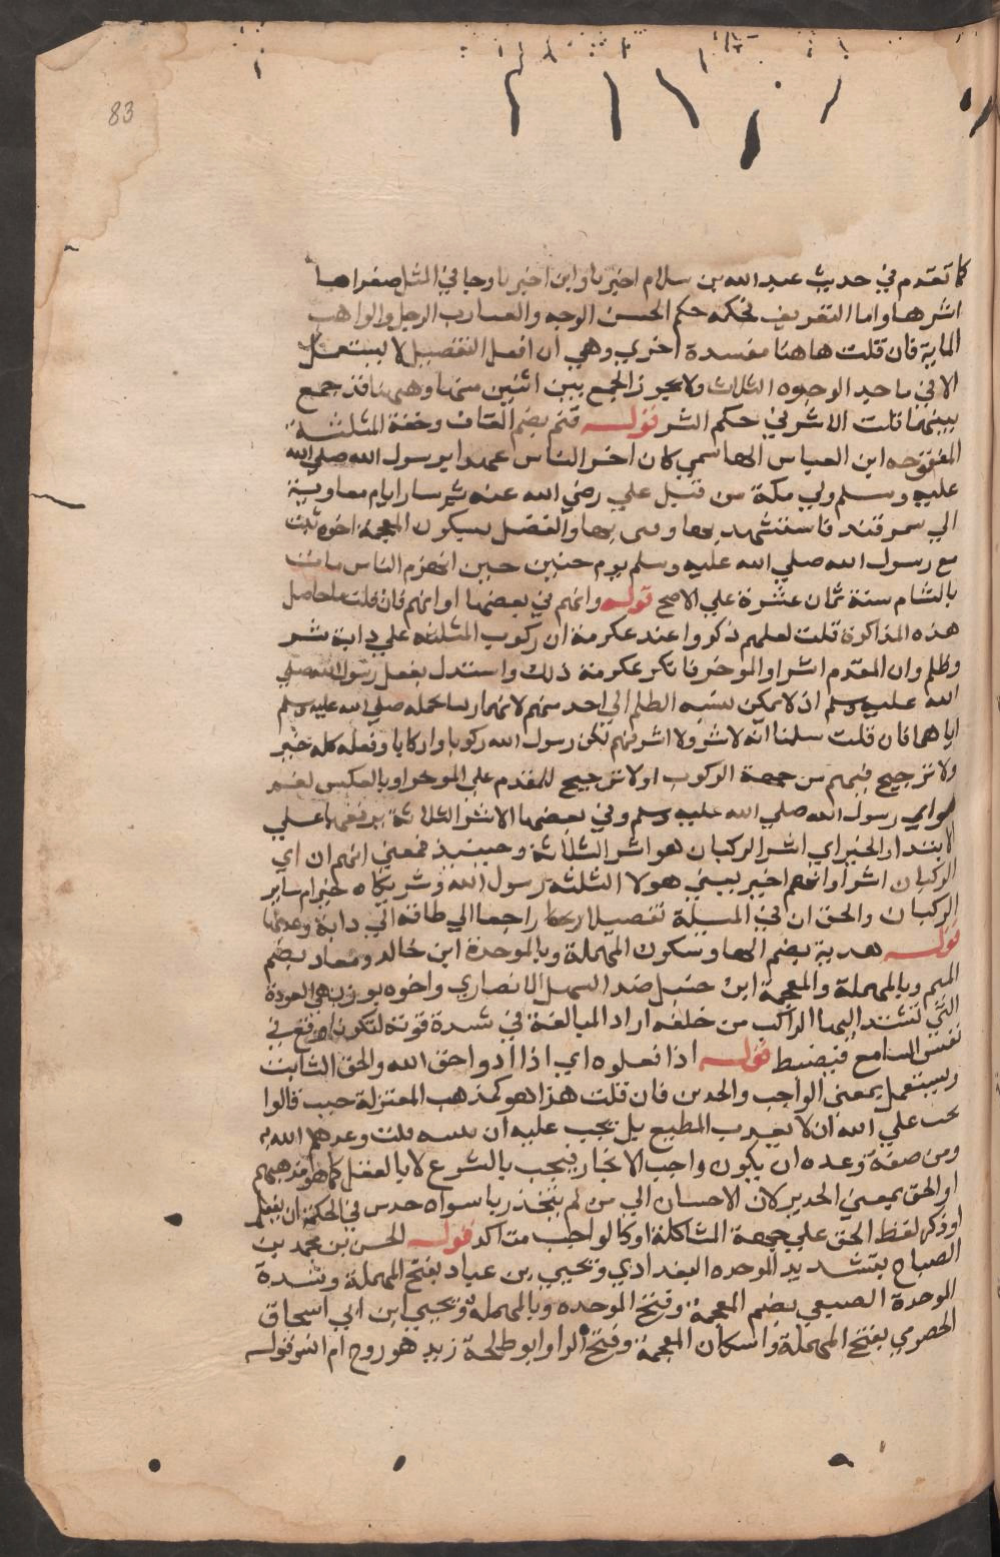 83
كما تقدم في حديث عبد الله بن سلام اخيرنا وابن اخيرنا وجا في المثل صغراها
اشرها واما التعريف فحكمه حكم الحسن الوجه والضارب الرجل والواهب
الماية فان قلت هاهنا مفسدة اخري وهي ان افعل التفضيل لا يستعمل
الا في باحد الوجوه الثلاث ولا يجوز الجمع بين اثنين منها وههنا قد جمع
بينهما قلت الاشر في حكم الشر قوله قثم بضم القاف وخفة المثلثة
المفتوحه ابن العباس الهاشمي كان اخر الناس عهدا برسول الله صلي الله
عليه وسلم ولي مكة من قبل علي رضي الله عنه ثم سار ايام معاوية
الي سمرقند فاستشهد بها وقبره بها والفضل بسكون المعجمة اخوه ثبت
مع رسول الله صلي الله عليه وسلم يوم حنين حين انهزم الناس مات
بالشام سنة ثمان عشرة علي الاصح قوله وانهم في بعضها او انهم فان قلت ما حاصل
هذه المذاكرة قلت لعلهم ذكروا عند عكرمة ان ركوب الثلثة علي دابة شر
وظلم وان المقدم اشر او الموخر فانكر عكرمة ذلك واستدل بفعل رسول الله صلي
الله عليه وسلم اذ لا يمكن نسبة الظلم الي احد منهم لانهما ركبا بحمله صلي الله عليه وسلم
اياهما فان قلت سلمنا انه لا شر ولا اشر ثم لكن رسول الله ركوبا واركابا وفعله كله خير
ولا ترجيح فيهم من جهة الركوب اولا ترجيح للمقدم علي الموخر او بالعكس لغير
هواي رسول الله صلي الله عليه وسلم وفي بعضها الاشر الثلاثة برفعهما علي
الابتدا والخبر اي اشر الركبان هو اشر الثلاثة وحينيذ فمعني ايهم ان اي
الركبان اشر او ايهم اخير يعني هولا الثلثة رسول الله وشريكاه خير ام ساير
الركبان والحق ان في المسيلة تفصيلا راجعا الي طاقة الدابة وعدمها
قوله هدبة بضم الها وسكون المهملة وبالموحدة ابن خالد ومعاذ بضم
الميم وبالمهملة والمعجمة ابن جبل ضد السهل الانصاري واخوه بوزن هي العودة
التي تستند اليها الراكب من خلفه اراد المبالغة في شدة قوته لتكون اوقع في
نفس السامع فيضبط قوله اذا فعلوه اي اذا ادوا حق الله والحق الثابت
ويستعمل بمعني الواجب والجدير فان قلت هذا هو كمذهب المعتزلة حيث قالوا
يجب علي الله ان لا يعذب المطيع بل يجب عليه ان يثيبه قلت وعدهم الله به
ومن صفة وعده ان يكون واجب الانجاز فيجب بالشرع لا بالعقل كما هو مذهبهم
او الحق بمعني الجدير لان الاحسان الي من لم يتخذ ربا سواه جدير في الحكمة ان يفعل
او ذكر لفظ الحق علي جهة المشاكلة او كالواجب متاكد قوله الحسن بن محمد بن
الصباح بتشديد الموحده البغدادي ويحيي بن عباد بفتح المهملة وشدة
الموحدة الضبعي بضم المعجمة وفتح الموحده وبالمهملة ويحيي ابن ابي اسحاق
الحضرمي بفتح المهملة واسكان المعجمة وفتح الرا وابو طلحة زيد هو زوج ام انس قوله